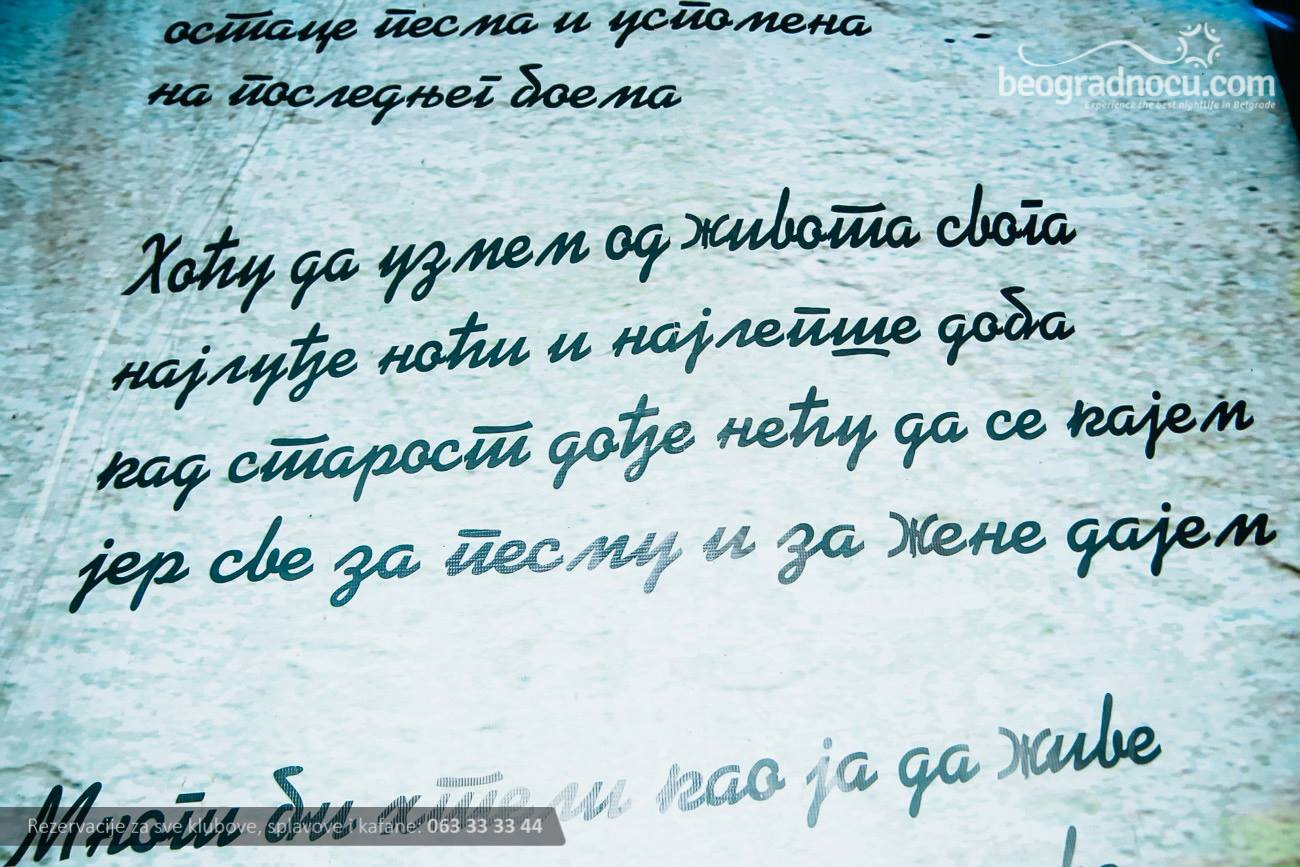 остаце песма и успомена
на последњег боема
beogradnocu.com
Experience the best nightlife in Belgrade
Хоћу да узмем од живота свога
најлуђе ноћи и најлепше доба
кад старост дође нећу да се кајем
јер све за песму и за жене дајем
Многи би хтели као ја да живе
Rezervacije za sve klubove, splavove i kafane: 063 33 33 44